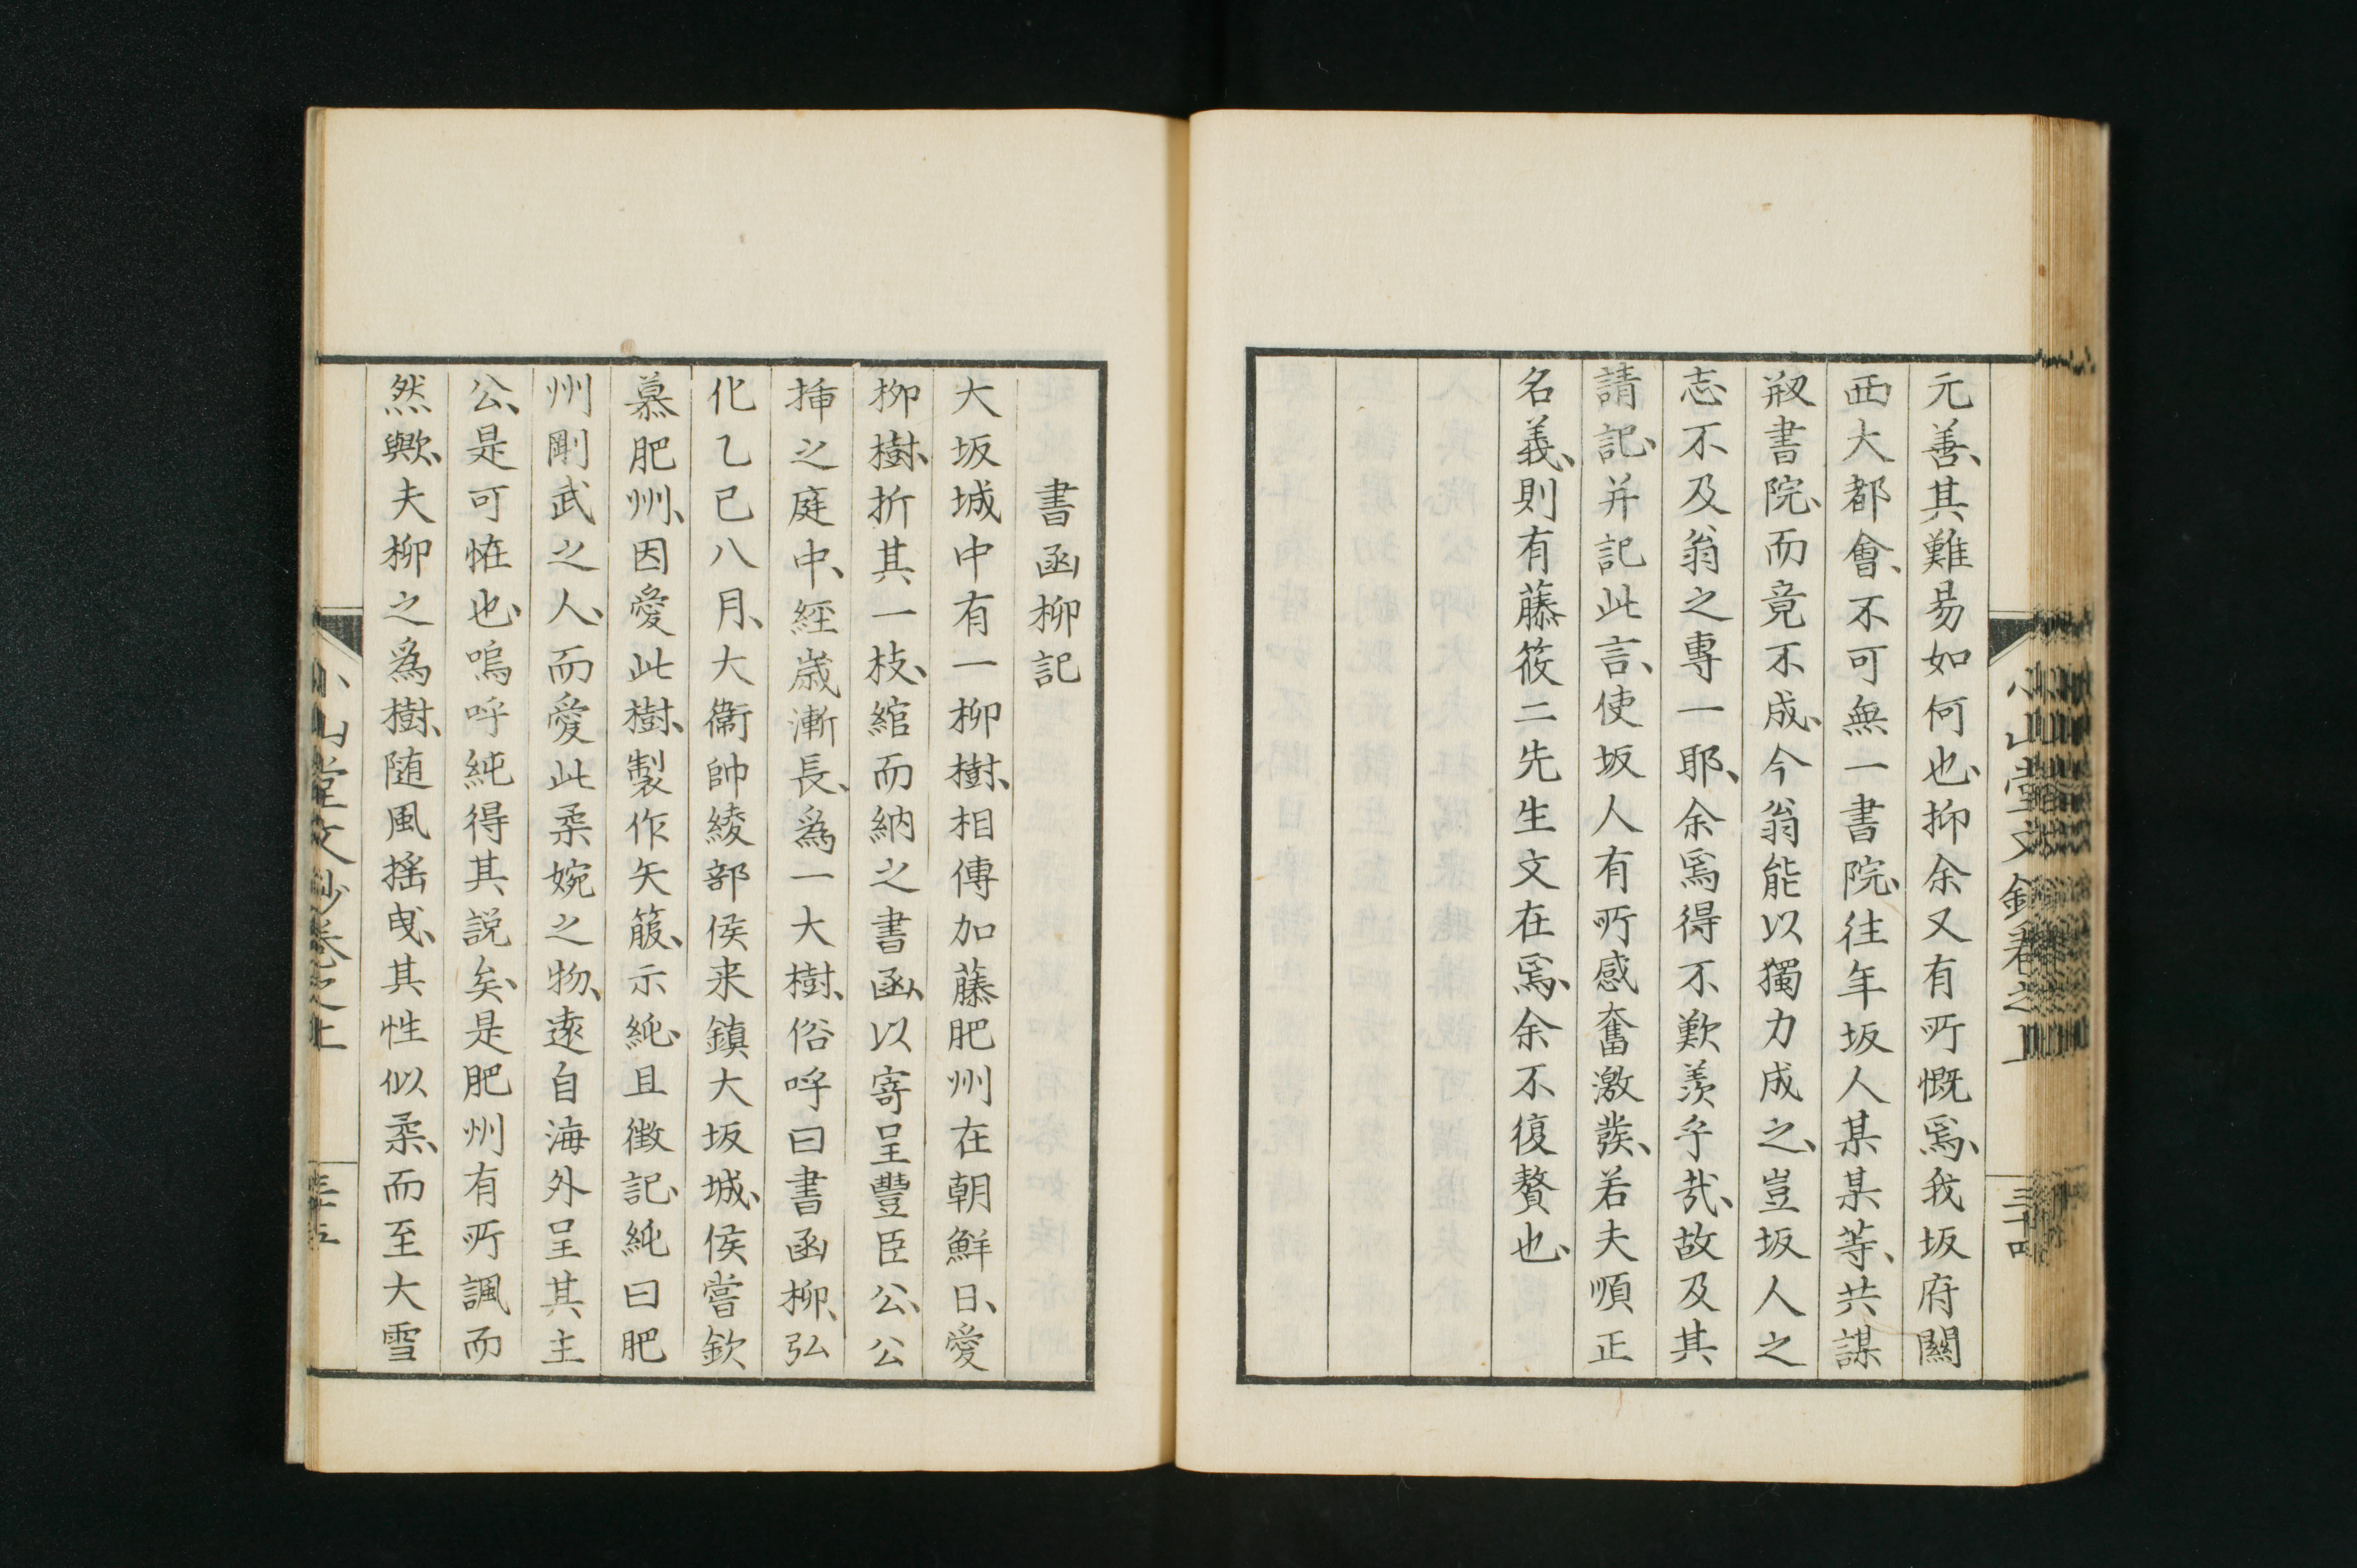 元善、其難易如何也、抑余又有所慨焉、我坂府關
西大都會、不可無一書院、往年坂人某某等、共謀
剏書院、而竟不成、今翁能以獨力成之、豈坂人之
志不及翁之專一耶、余焉得不歎羨乎哉、故及其
請記、并記此言、使坂人有所感奮激發、若夫順正
名義、則有藤筱二先生文在焉、余不復贅也、
書函柳記
大坂城中有一柳樹、相傳加藤肥州在朝鮮日、愛
柳樹、折其一枝、綰而納之書函、以寄呈豐臣公、公
挿之庭中、經歳漸長、爲一大樹、俗呼曰書函柳、弘
化乙巳八月、大衞帥綾部侯来鎮大坂城、侯嘗欽
慕肥州、因愛此樹、製作矢箙、示純、且徴記、純曰肥
州剛武之人、而愛此柔婉之物、遠自海外呈其主
公、是可恠也、嗚呼純得其説矣、是肥州有所諷而
然歟、夫柳之爲樹、随風揺曵、其性似柔、而至大雪
小山堂文鈔卷之上
三十四
小山堂文鈔卷之上